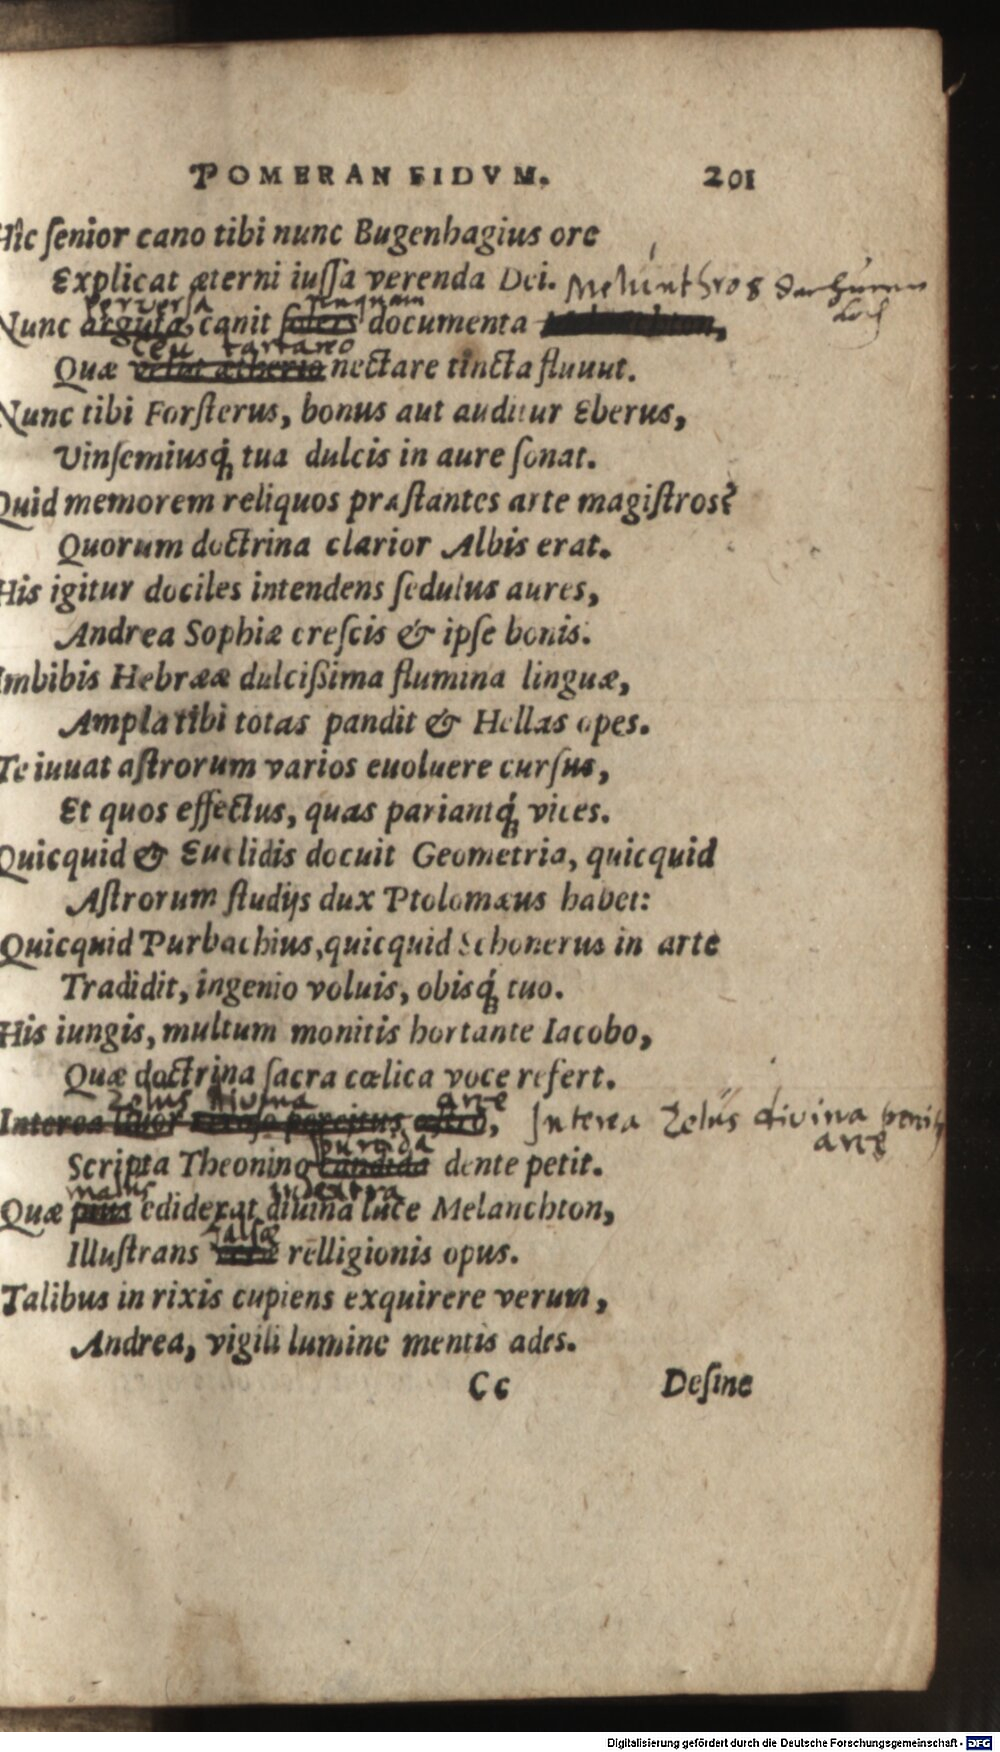 POMERANEIDVM. 201
Hîc ſenior cano tibi nunc Bugenhagius ore
Explicat æterni iuſſa verenda Dei.
perversa nunquam
Nunc arguta canit ſolers documenta Melanchton,
ceu tartareo
Quæ velut ætherio nectare tincta fluuut.
Nunc tibi Forſterus, bonus aut auditur Eberus,
Vinſemiusq́; tua dulcis in aure ſonat.
Quid memorem reliquos præſtantes arte magiſtros?
Quorum doctrina clarior Albis erat.
His igitur dociles intendens ſedulus aures,
Andrea Sophiæ creſcis & ipſe bonis.
Imbibis Hebrææ dulciſsima flumina linguæ,
Ampla tibi totas pandit & Hellas opes.
Te iuuat aſtrorum varios euoluere curſus,
Et quos effectus, quas pariantq́; vices.
Quicquid & Euclidis docuit Geometria, quicquid
Aſtrorum ſtudijs dux Ptolomæus habet:
Quicquid Purbachius, quicquid Schonerus in arte
Tradidit, ingenio voluis, obisq́; tuo.
His iungis, multum monitis hortante Iacobo,
Quæ doctrina ſacra cœlica voce refert.
Zelus divina arte
Interea liuor percitus, Interea Zelus divina
arte
turgida
Scripta Theonino candida dente petit.
malus
Quæ pius ediderat diuina luce Melanchton,
falsæ
Illuſtrans veræ relligionis opus.
Talibus in rixis cupiens exquirere verum,
Andrea, vigili lumine mentis ades.
Cc Deſine
Digitalisierung gefördert durch die Deutsche Forschungsgemeinschaft - DFG